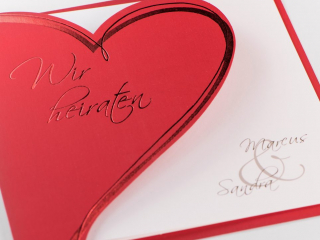 Wir
heiraten
Marcus
&
Sandra